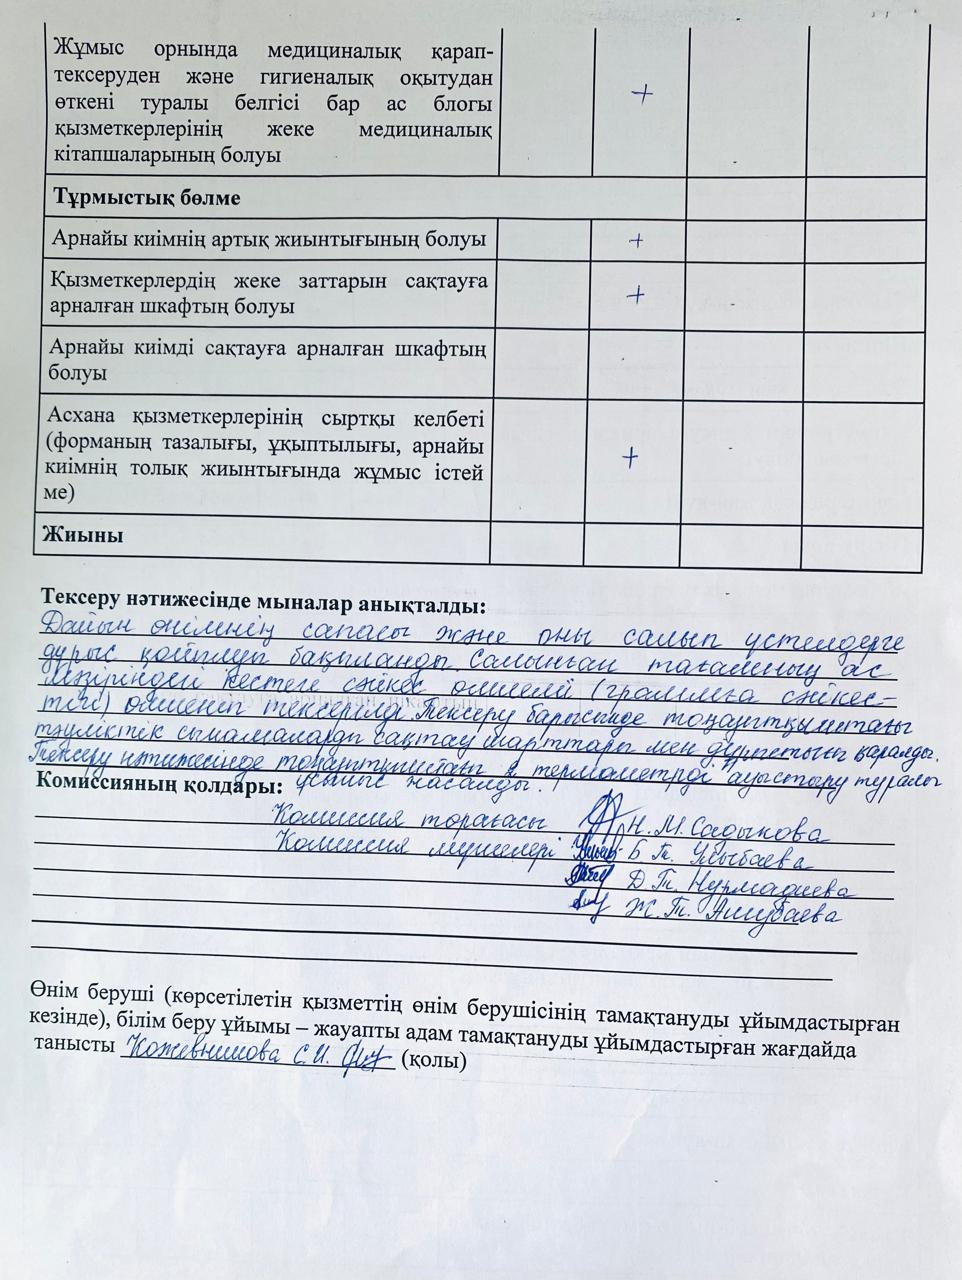 Жұмыс орнында медициналық қарап-
тексеруден және гигиеналық оқытудан
өткені туралы белгісі бар ас блогы
қызметкерлерінің жеке медициналық
кітапшаларының болуы +
Тұрмыстық бөлме
Арнайы киімнің артық жиынтығының болуы +
Қызметкерлердің жеке заттарын сақтауға
арналған шкафтың болуы +
Арнайы киімді сақтауға арналған шкафтың
болуы
Асхана қызметкерлерінің сыртқы келбеті
(форманың тазалығы, ұқыптылығы, арнайы
киімнің толық жиынтығында жұмыс істей
ме) +
Жиыны
Тексеру нәтижесінде мыналар анықталды:
Дайын өнімнің сапасы және оны салып үстелдерге
дұрыс қойылуы бақыланды. Салынған тағамның ас
мәзіріндегі кестеге сәйкес өлшемі (граммға сәйкес-
тігі) өлшеніп тексерілді. Тексеру барысында тоңазытқыштағы
тәуліктік сынамаларды сақтау шарттары мен қаралды.
Тексеру нәтижесінде тоңазытқыштағы 2 термометрді ауыстыру туралы
Комиссияның қолдары: ұсыныс жасалды.
Комиссия төрағасы Н.М.Садыкова
Комиссия мүшелері Б.Т.
Д.Т. Нурмадиева
Ж.Т.
Өнім беруші (көрсетілетін қызметтің өнім берушісінің тамақтануды ұйымдастырған
кезінде), білім беру ұйымы – жауапты адам тамақтануды ұйымдастырған жағдайда
танысты Кожевникова С.И. (қолы)